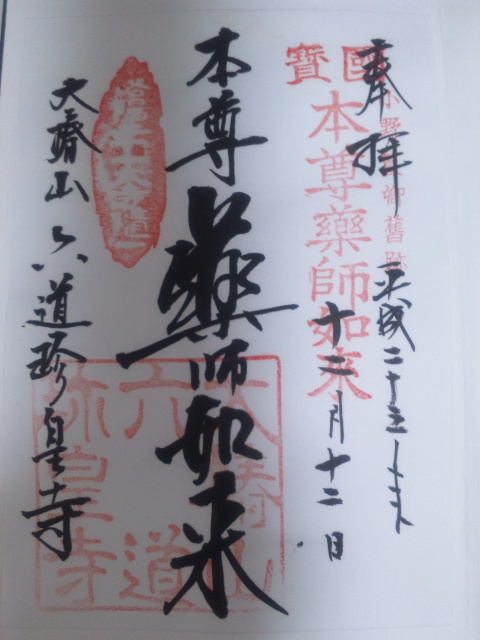 奉拝
平成二十三年
十二月十二日
國寶
本尊藥師如来
小野
卿舊跡
本尊
薬師如来
大椿山
六道珍皇寺
大椿山
六道
珍皇寺